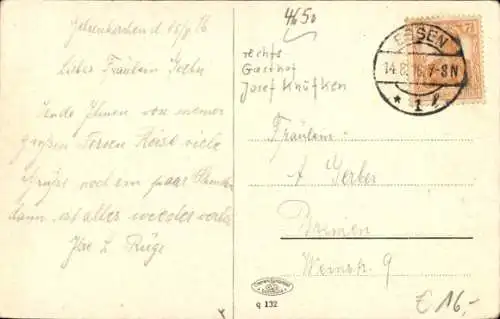 Gelsenkirchen d 15/8 16
Liebes Fräulein Gerber
Sende Ihnen von meiner
großen Ferien Reise viele
Grüße noch ein paar Stunden
dann ist alles wieder vorbei
4650
rechts
Gasthof
Josef Knüfken
ESSEN
14.8.16. 7-8N
* 1 l
7½
Fräulein
A Gerber
Bremen
Weinstr. 9
q 132
€ 16,-